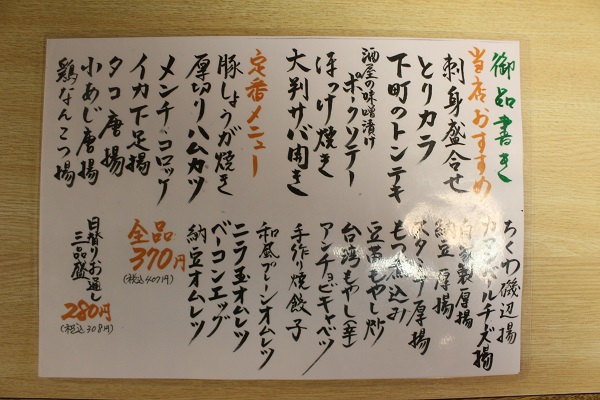 御品書き
当店おすすめ
刺身盛合せ
とりカラ
下町のトンテキ
酒屋の味噌漬け
ポークソテー
ほっけ焼き
大判サバ開き
定番メニュー
豚しょうが焼き
厚切りハムカツ
メンチ・コロッケ
イカ下足揚
タコ唐揚
小あじ唐揚
鶏なんこつ揚
ちくわ磯辺揚
カマンベールチーズ揚
自家製厚揚
納豆厚揚
厚揚
もつ煮込み
豆苗もやし炒
台湾もやし(辛)
アンチョビキャベツ
手作り焼餃子
和風プレーンオムレツ
ニラ玉オムレツ
ベーコンエッグ
納豆オムレツ
全品
370円
(税込407円)
日替りお通し
三品盛
280円
(税込308円)